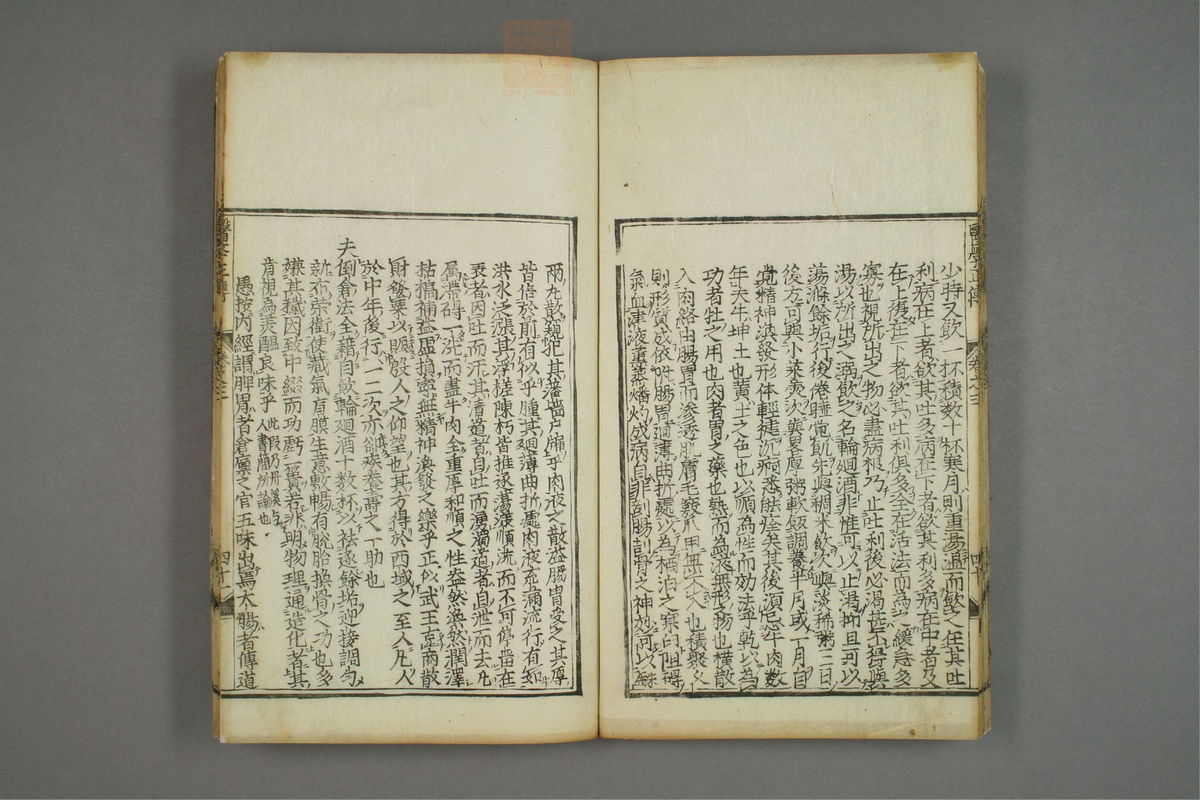 醫學正傳 卷之三 四十
少時又飲一杯積数十杯寒月則重湯温而飲之任其吐
利病在上者欲其吐多病在下者欲其利多病在中者乃
在上復在下者欲其吐利俱多全在活法而為之緩急多
寡也視所出之物必盡病根乃止吐利後必渴甚不得與
湯以所出之溺飲之名輪廻酒非惟可以止渴抑且可以
蕩滌餘垢行後倦睡覺飢先與稠米飲次與淡稀粥三日
後方可與小菜羹次與畧厚粥軟飯調養半月或一月自
覚精神渙發形体輕徤沉痾悉能痊矣其後須忌牛肉数
年夫牛坤土也黄土之色也以順為性而効法乎乾以為
功者牡之用也肉者胃之藥也熟而為液無形之物也横散
入肉絡由腸胃而滲透肌膚毛竅爪甲無不入也積聚久
則形質成依附腸胃廻薄曲折處以為栖泊之窠臼阻碍
氣血津液薫蒸燔灼成病自非刮腸剖骨之神妙可以
兩丸散窺犯其藩墻户牖乎肉液之散溢腸胃受之其厚
皆倍於前有似乎腫其廻薄曲折處肉液充満流行有如
洪水之漲其浮槎陳朽皆推逐蕩漾順流而不可停畱在
表者因吐而汗其清道者自吐而湧濁道者自泄而去凡
属滯碍一洗而盡牛肉全重厚和順之性盎然渙然潤澤
枯槁補益虚損寧無精神渙發之樂乎正似武王克商散
財發粟以賑殷人之仰望也其方得於西域之至人凡人
於中年後行一二次亦却疾養壽之一助也
夫倒倉法全藉自飲輪廻酒十数杯以袪逐餘垢迎接調匀
新布榮衛使蔵氣肓膜生意敷暢有脱胎換骨之功也多
嫌其穢因致中輟而功虧一簣若非明物理通造化者其
肯視為美醖良味乎
愚按内經謂脾胃者倉廩之官五味出焉大腸者傳道
醫學正傳 卷之三 四十一